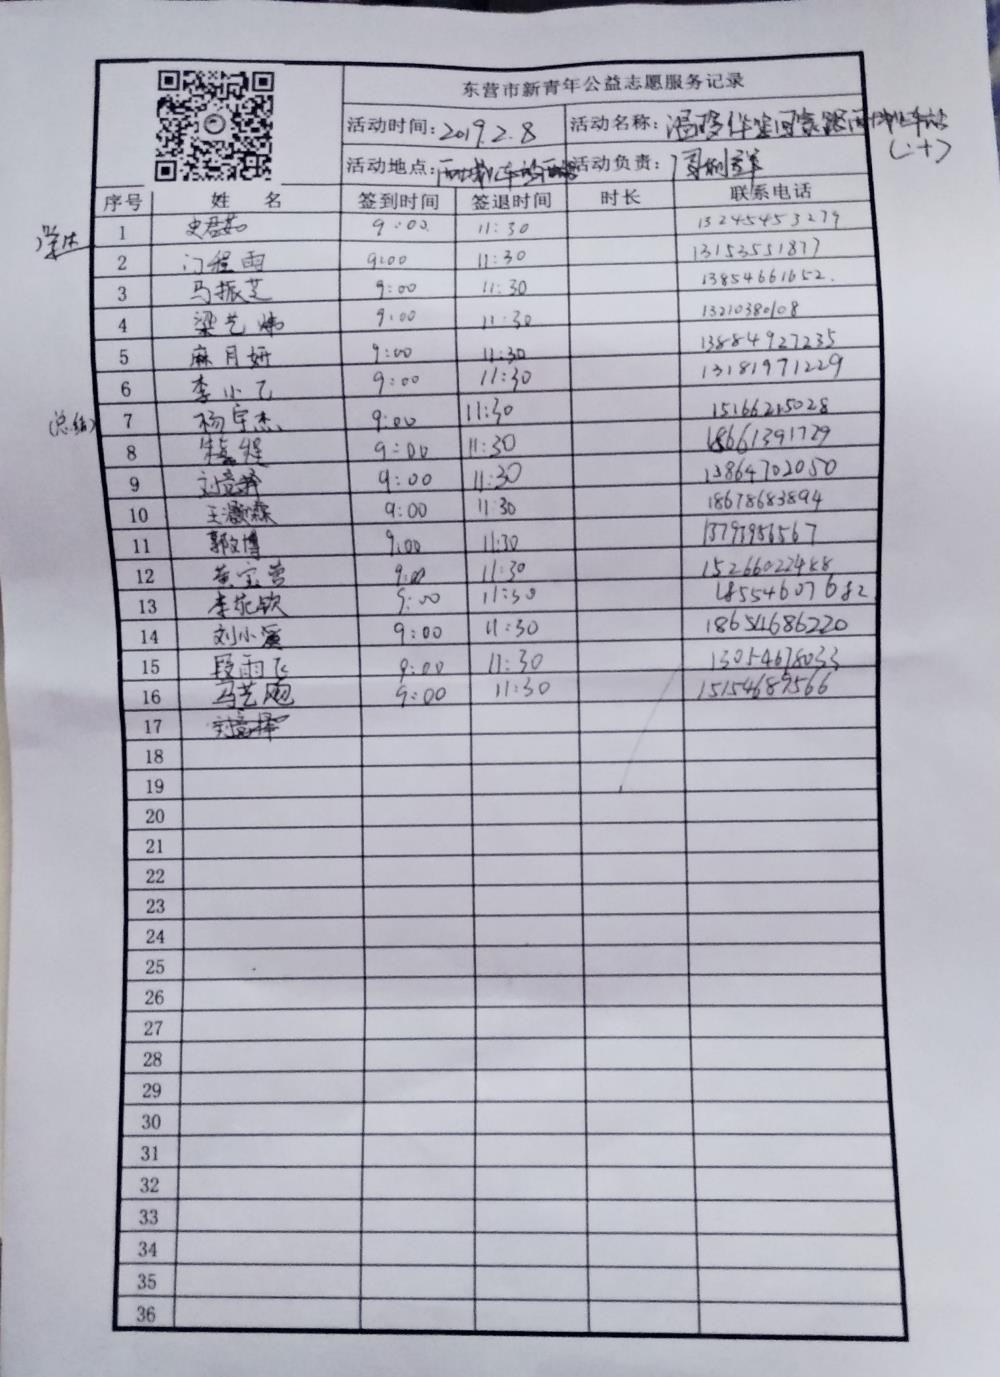 东营市新青年公益志愿服务记录
活动时间：2019.2.8 活动名称：温暖伴笙回家路西城汽车站
(二十)
活动地点：西城汽车站 活动负责：
序号 姓名 签到时间 签退时间 时长 联系电话
1 史君茹 9:00 11:30 13245453279
2 门程雨 9:00 11:30 13153551877
3 马振芝 9:00 11:30 13854661652.
4 梁艺炜 9:00 11:30 13210380108
5 麻月妍 9:00 11:30 13884927235
6 李小乙 9:00 11:30 13181971229
(总结) 7 杨宇杰 9:00 11:30 15166215028
8 9:00 11:30 18661391729
9 刘意择 9:00 11:30 13864702050
10 王灏霖 9:00 11:30 18678683894
11 郭文博 9:00 11:30 13793956567
12 黄宝萱 9:00 11:30 15266022488
13 李花钦 9:00 11:30 18554607682
14 刘小溪 9:00 11:30 18654686220
15 段雨飞 9:00 11:30 13054678033
16 马艺飏 9:00 11:30 15154687566
17
18
19
20
21
22
23
24
25
26
27
28
29
30
31
32
33
34
35
36